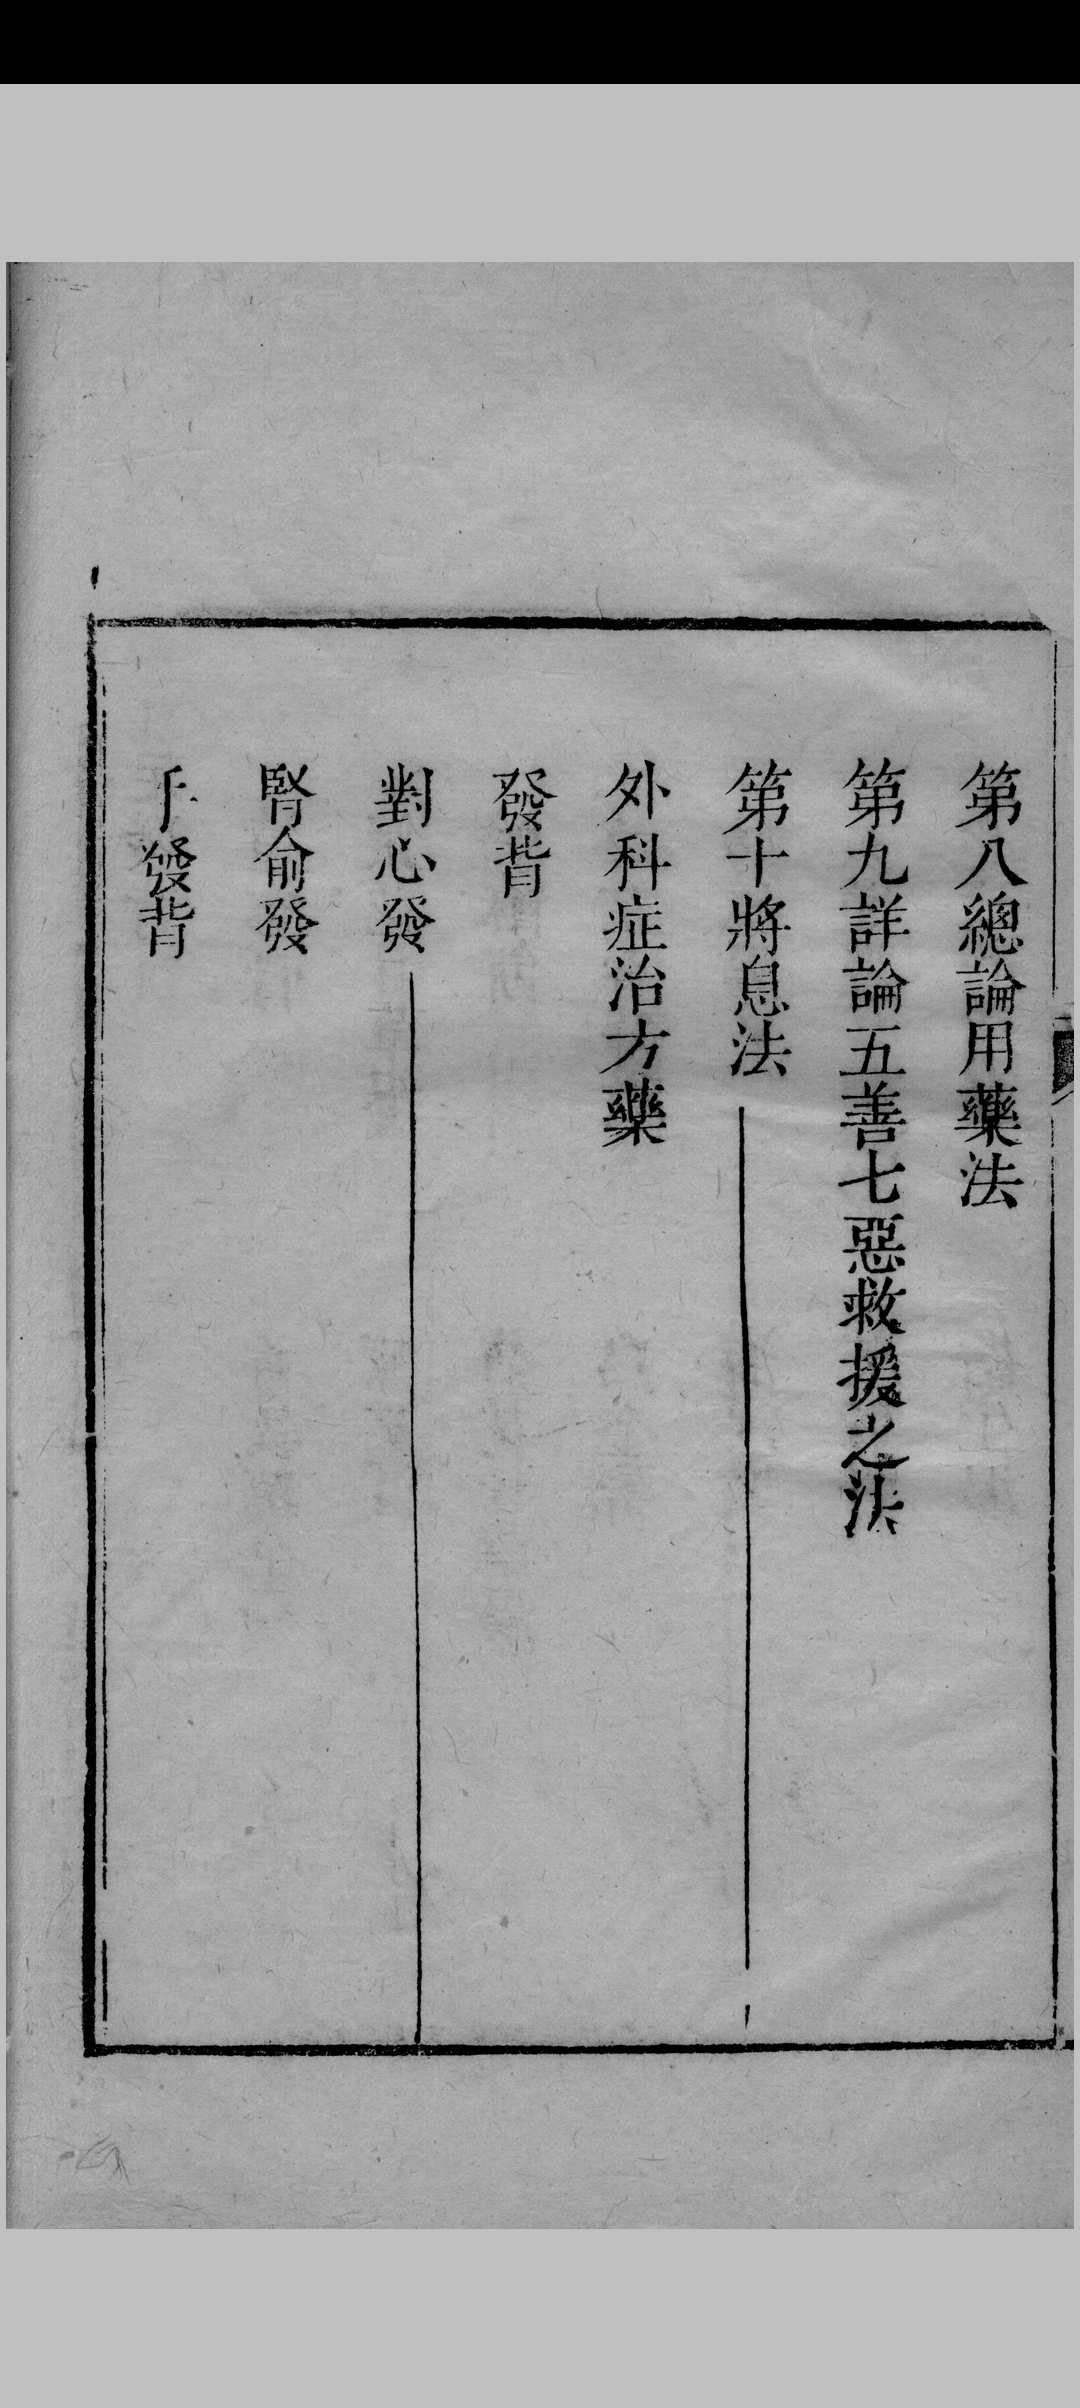 第八總論用藥法
第九詳論五善七惡救援之法
第十將息法
外科症治方藥
發背
對心發
腎俞發
發背